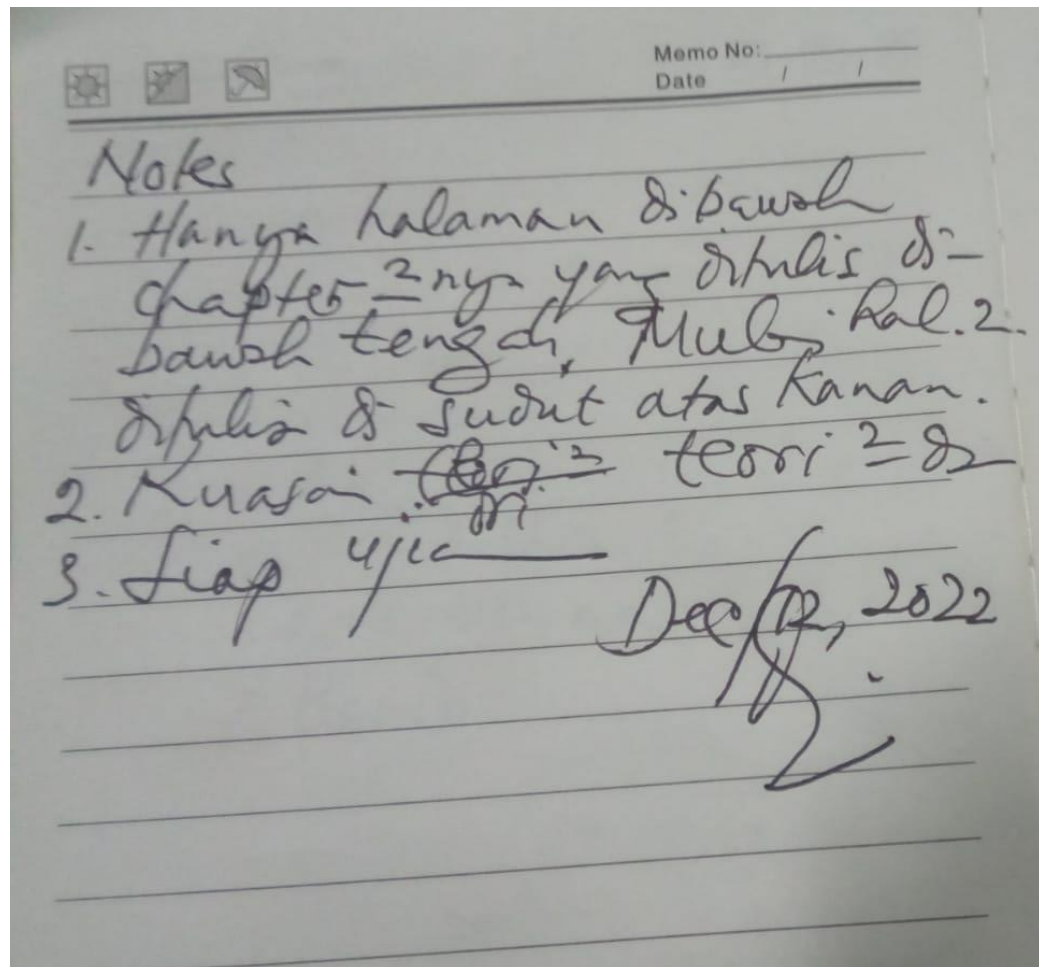 Memo No:
Date / /
Notes
1. Hanya halaman dibawah
chapter 2nya yang ditulis di-
bawah tengah, Mulai hal. 2.
ditulis di sudut atas kanan.
2. Kuasai teori2
3. Siap
Dec 12, 2022